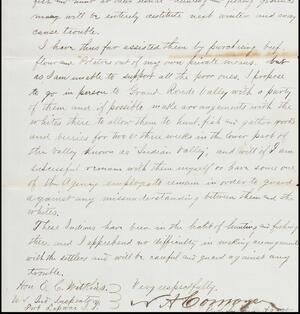 fish and hunt at their usual hunting and fishing grounds
many will be entirely destitute next winter and may
cause trouble.
I have thus far assisted them by purchasing beef
flour and Potatoes out of my own private means. but
as I am unable to support all the poor ones. I propose
to go in person to Grand Ronde Valley with a party
of them and if possible make arrangements with the
whites there to allow them to hunt, fish and gather roots
and berries for two or three weeks in the lower part of
the Valley known as "Indian Valley", and will if I am
successful remain with them myself or have some one
of the Agency employees remain in order to guard
against any misunderstanding between them and the
whites.
These Indians have been in the habit of hunting and fishing
there, and I apprehend no difficulty in making arrangements
with the settlers and will be careful and guard against any
trouble.
Hon E. C. Watkins. Very respectfully.
U.S. Ind. Inspector N. A. Cornoyer
Fort Lapwai I.T.